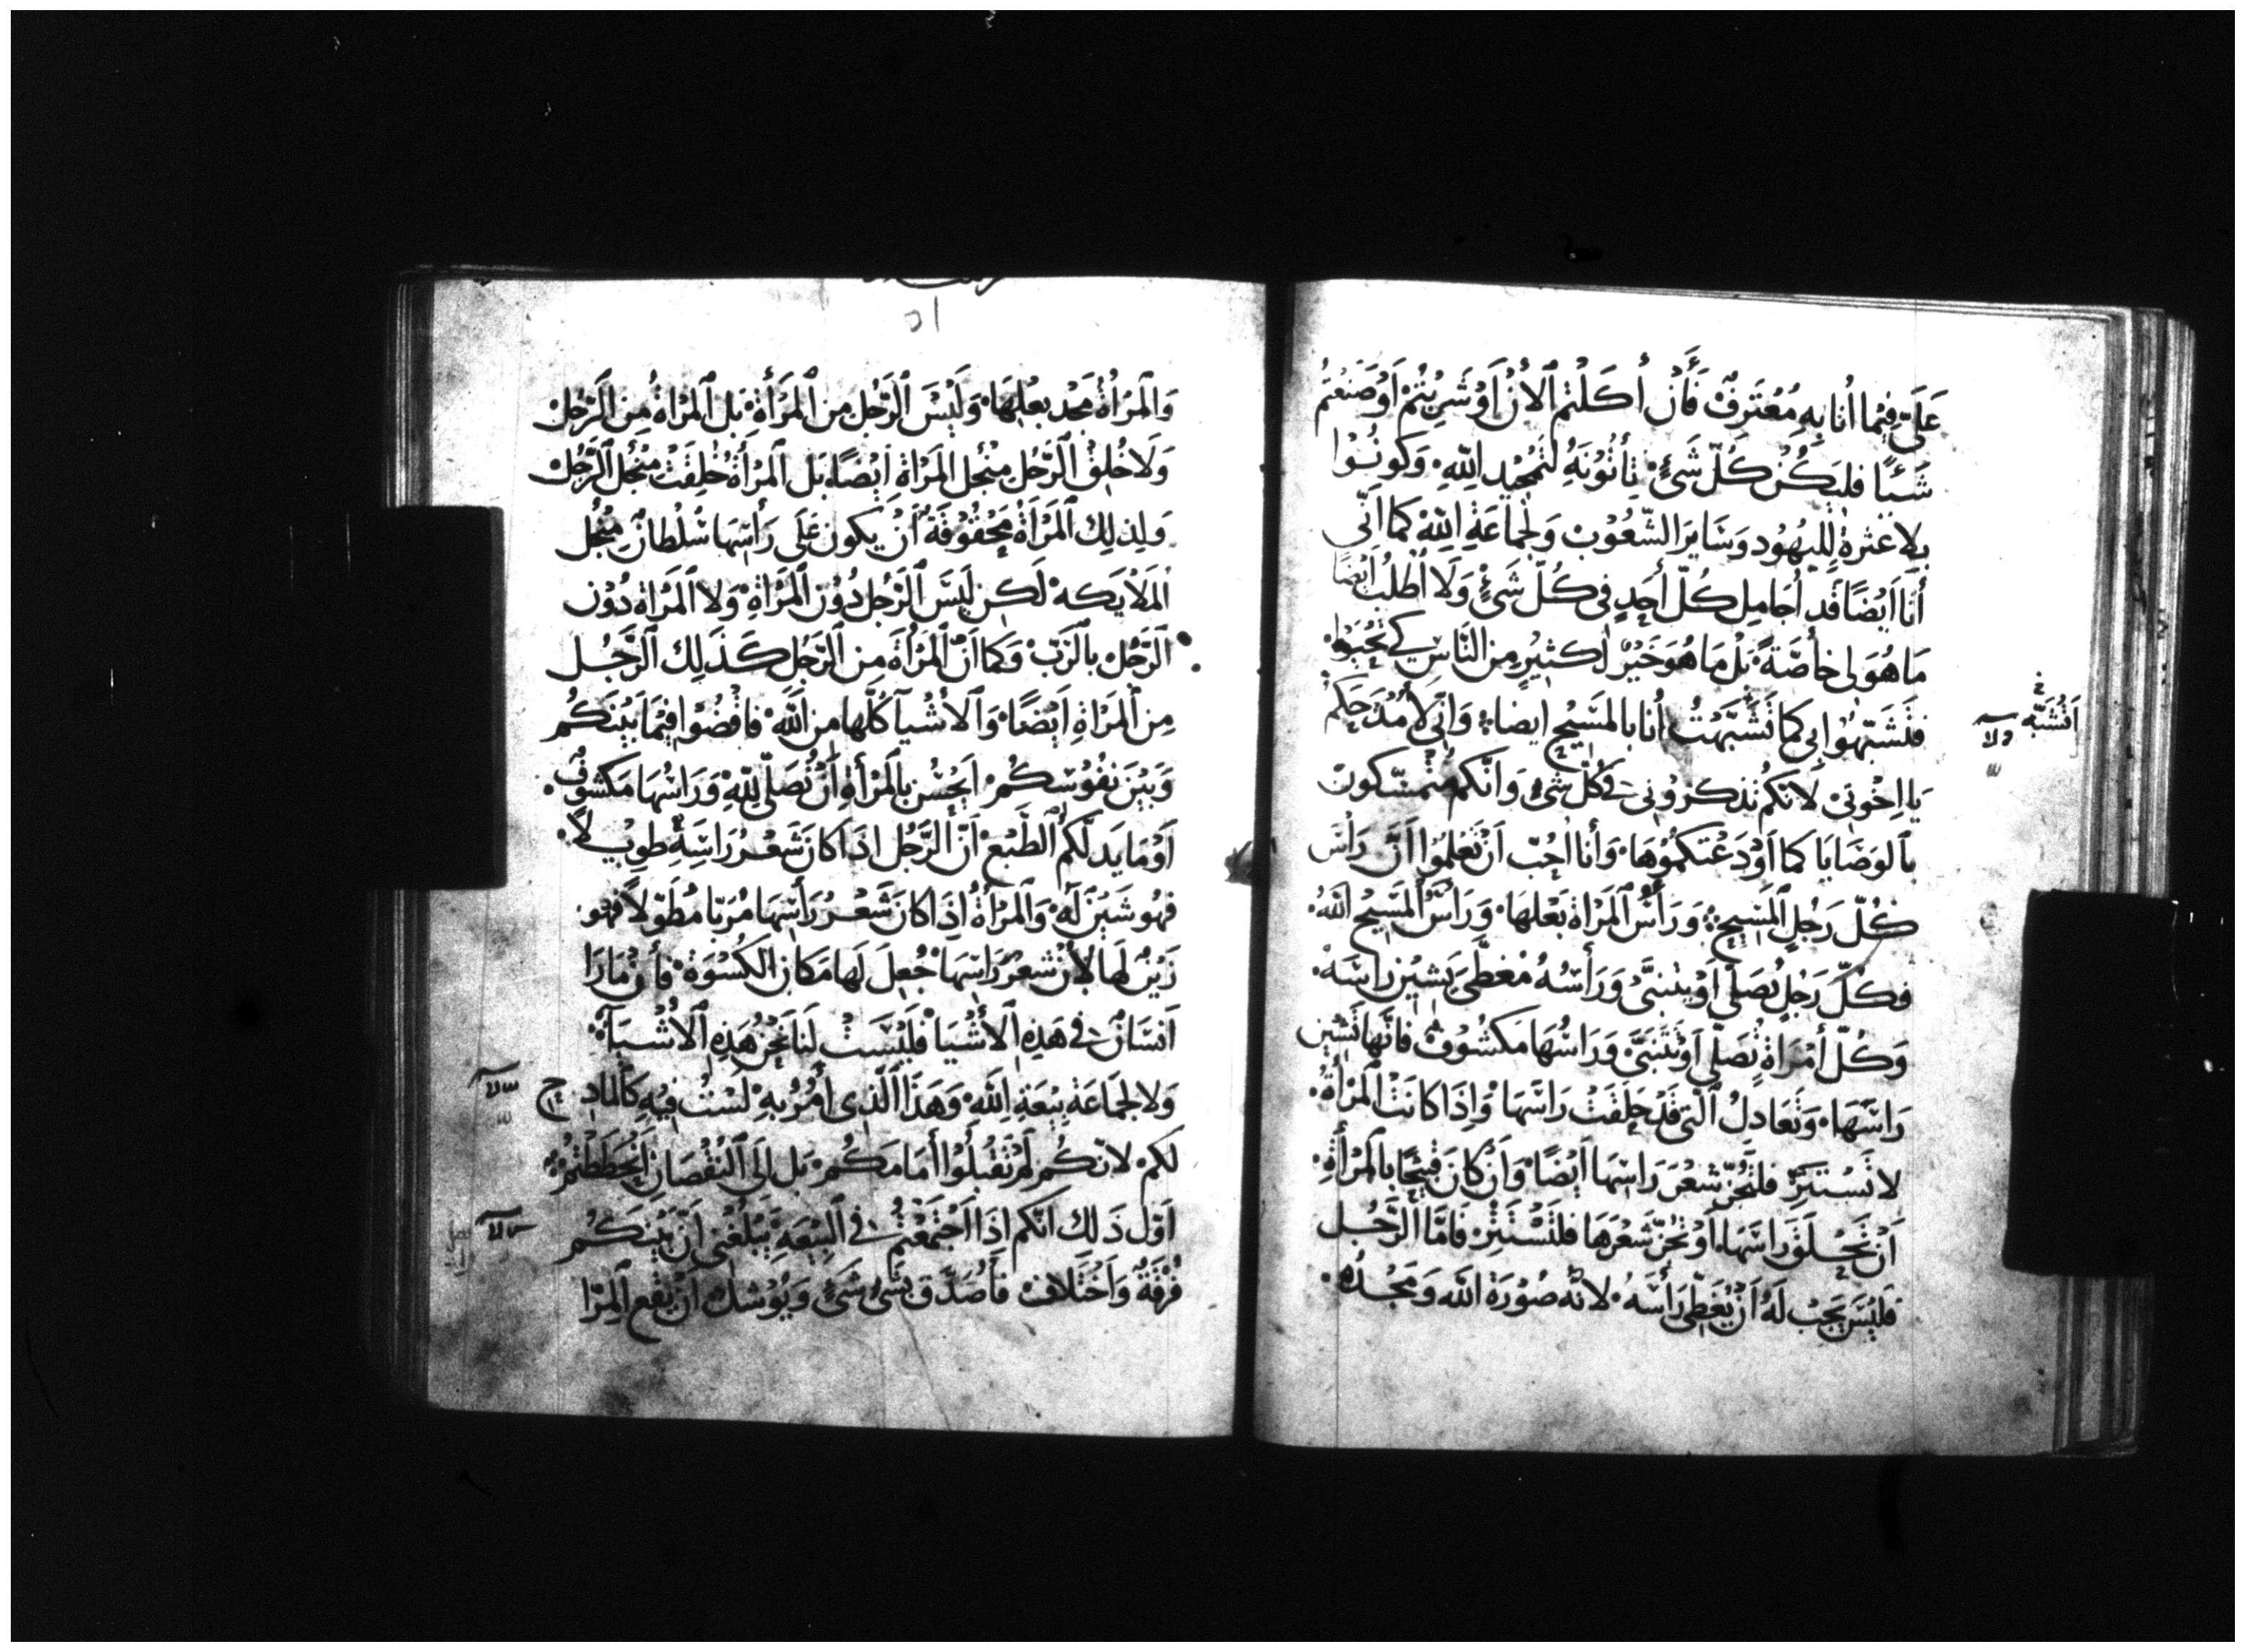 عَلَيَّ فِيْمَا أَنَا بِهِ مُعْتَرِفٌ فَأَنْ أَكَلْتُم اَلأَنْ اَوْ شَرِبْتُمْ اَوْ صَنَعْتُمْ
شَيْئًا فَلْيَكُنْ كُلّ شَيْءٍ تَأْتُوْنَهُ لتَمْجِيْدِ اللّهِ وَكُونُوْا
بِلا عَثْرةٍ لِليَهُوْد وَسَايرَ الشّعُوْبْ وَلجَمَاعَةِ اللهِ كَمَا اَنّي
أَنَا اَيْضًا قَد أُجَامِل كُلّ أَحَدٍ فِي كُلّ شَيْءٍ وَلَا أَطْلُب ايضًا
مَا هُوَ لي خاصَّةً بَلْ مَا هُوَ خَيْرٌ لكثِيْرٍ مِن النَّاسِ كَي يَحْيَوا
فتَشَبّهُوْا بي كَمَا تَشَبّهْتُ أَنَا بالمَسِيْحِ ايضا وَانّي لأَمْدَحكُم
يَا اِخْوَتِي لانّكُم تَذكرُوْنِي فِي كلّ شَيْءٍ وَانّكُم مُتمَسّكُونْ
بالوَصَايَا كما اَوْدَعْتكمُوْهَا وَأَنَا احُبّ اَنْ تَعْلَمُوْا اَنّ رَأْسَ
كُلّ رَجُلٍ المَسِيْحِ وَرَأْسُ اَلمَرْاةِ بَعْلهَا وَرَاْسُ اَلمَسِيْحِ اللهُ
فكُلّ رَجُلٍ يُصَلّي اَوْ يَتنَبَّى وَرَأْسُهُ مُغَطَّى يَشِيْن رَاسَهْ
وَكُلّ أَمْرَاةٍ تُصَلّي اَوْ تَتَنَبَّى وَرَاسُهَا مَكشُوْفْ فَانَّهَا تَشِيْن
رَاسَهَا وَتُعَادِلُ الَّتي قَدْ حَلَقَتْ رَاسَهَا وَاِذَا كَانَتْ اَلمَرْأَةُ
لا تَسْتَتِرْ فلتَجُزّ شعْرَ رَاسِهَا اَيْضًا وَاَنْ كَانَ قَبيْحًا بِالمَرْأَةِ
اَنْ تَحْلَقَ رَاسَهَا اَوْ تَجُزّ شَعْرَهَا فلتَسْتَتِرْ فَامَّا الرَّجُل
فَليْسَ يَجبْ لَهُ اَنْ يُغَطّي رَأْسَهُ لانّهُ صُوْرَةُ اللهِ وَمَجْدُهُ
اَتَشَبّه
٥١
وَالمَرْأَةُ مَجْد بَعْلِهَا وَلَيْسَ اَلرَّجُل مِن اَلمَرْأَةِ بَل اَلمَرْاةُ مِن اَلرَّجُلْ
وَلَا خُلِقَ اَلرَّجُل مِنْجُل اَلمَرْاةِ اَيْضًا بَل اَلمَرْاَةُ خُلِقَتْ مِنْجُل اَلرَّجُلْ
وَلِذلِك اَلمَرْاَةُ مَحْقُوْقَةٌ اَنْ يَكون عَلَى رَأْسِهَا سُلْطَانٌ مِنْجُل
اَلمَلايَكه لَكِن لَيْسَ اَلرَّجُل دُوْن اَلمَرْاةِ وَلا اَلمَرْاة دُوْن
اَلرَّجُلْ بِالرَّبّ وَكَمَا اَنّ اَلمَرْأَةَ مِن اَلرَّجُل كَذَلِكَ اَلرَّجُل
مِن اَلمَرْاةِ اَيْضًا وَاَلأَشْيَآ كُلّهَا مِن اللهِ فَاقْضُوْا فِيْمَا بَيْنَكُمْ
وَبَيْنَ نفُوْسكُمْ اَيحْسُن بِالمَرْأَةِ اَنْ تُصَلّي لِلّهِ وَرَاسُهَا مَكشُوْفْ
اَوْ مَا يَدلّكُم اَلطّبْع اَنّ اَلرَّجُل اذَا كَانَ شَعْرُ رَاسِهِ طَوِيْلًا
فهُو شَيْنٌ لَهُ وَاَلمَرْأَةُ اِذَا كَانَ شَعْرُ رَأْسِهَا مُرَبّا مُطَوّلًا فهُو
زَيْنٌ لهَا لأَنّ شعْرَ رَاسِهَا جُعِلَ لَهَا مَكَان الكسْوَةِ فَأَنْ مَارَا
اَنسَانٌ فِي هَذِهِ اَلأَشْيَا فَلَيْسَتْ لَنَا نَحْنُ هَذِهِ اَلأَشْيَآ
وَلا لجَمَاعَةِ بيْعَةِ اللهِ وَهَذَا اَلّذِي أَمُرُ بِهِ لَسْتُ فِيْهِ كَالمَادِح
لَكم لانّكُم لَمْ تُقْبِلُوْا أَمَامَكُمْ بَل اِلَى اَلنّقْصَانِ اَنْحَطَطْتُمْ
اَوّل ذَلكَ انّكم اِذَا اَجْتَمَعْتُمْ فِي اَلبيْعَةِ يَبْلُغنِي اَنّ بَيْنَكُمْ
فُرْقَةً وَاَخْتِلافْ فَأُصَدّق بِشَيْءٍ شَيْءٍ وَيُوْشكُ اَنْ يَقَعَ اَلمِرَا